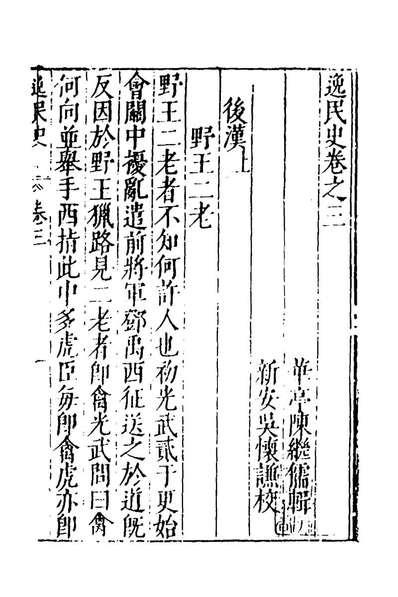 逸民史卷之三
華亭陳繼儒輯
新安吳懷謙校
後漢上
野王二老
野王二老者不知何許人也初光武貳于更始
會關中擾亂遣前將軍鄧禹西征送之於道旣
反因於野王獵路見二老者卽禽光武問曰禽
何向並舉手西指此中多虎臣每卽禽虎亦卽
逸民史 卷三 一